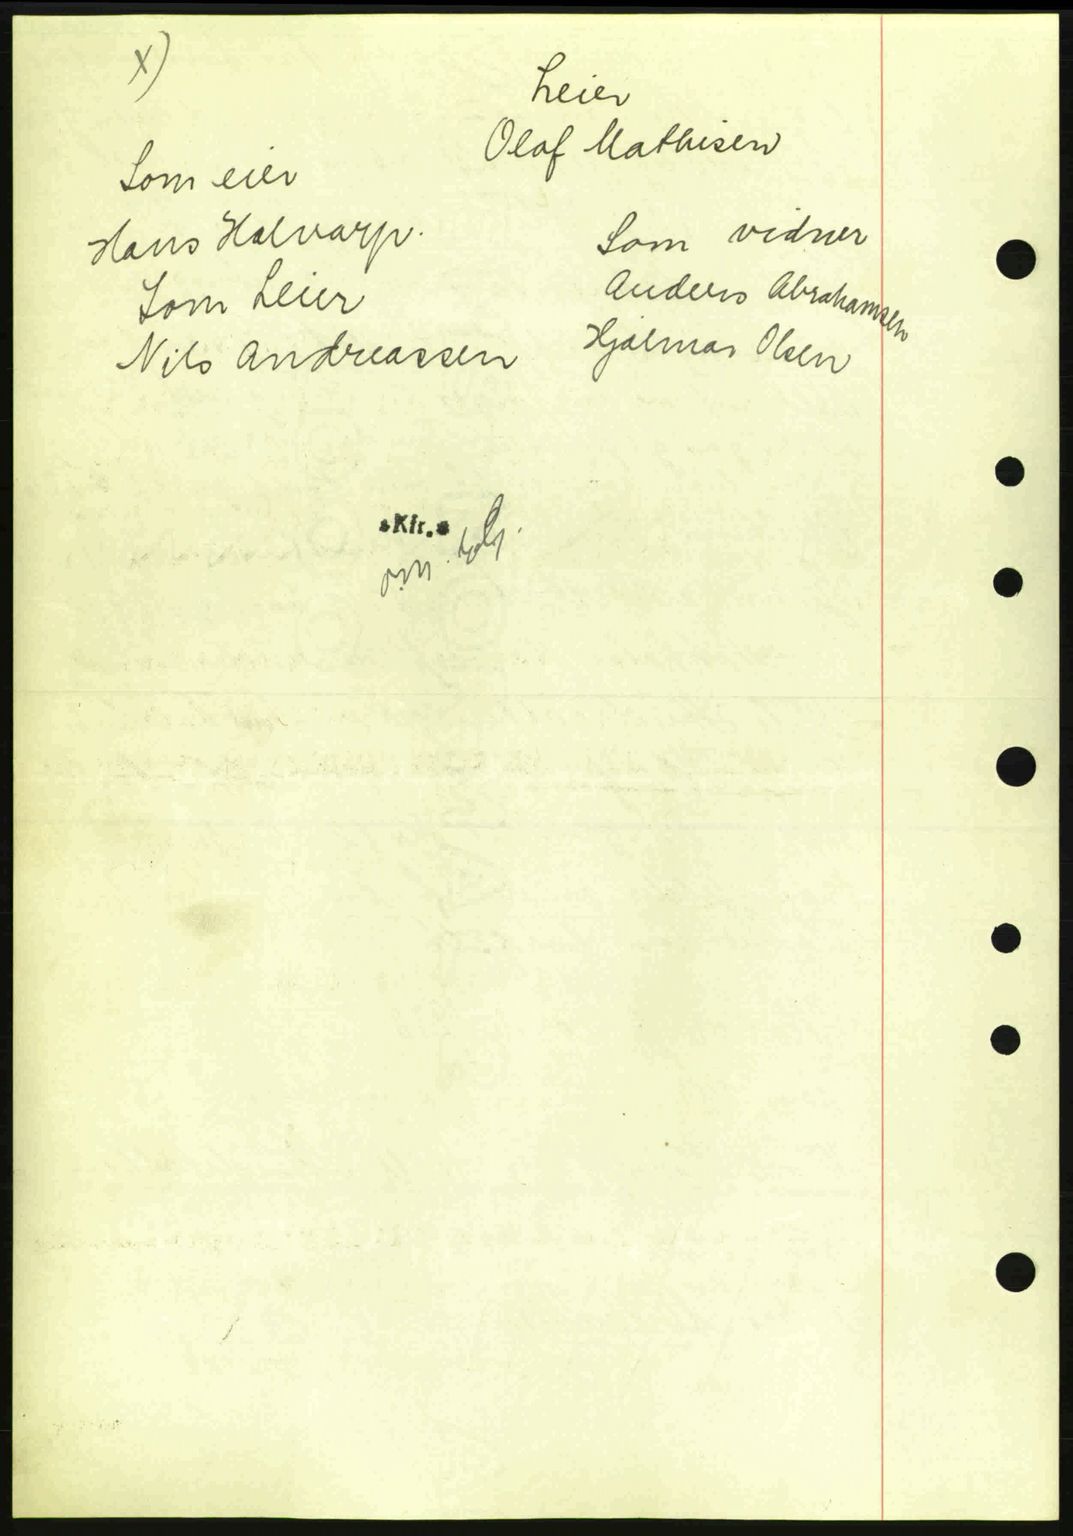 X)
Leier
Olaf Mathisen
Som eier
Hans
Som Leier
Nils Andreassen
Som vidner
Anders Abrahamsen
Hjalmar Olsen
Kfr.